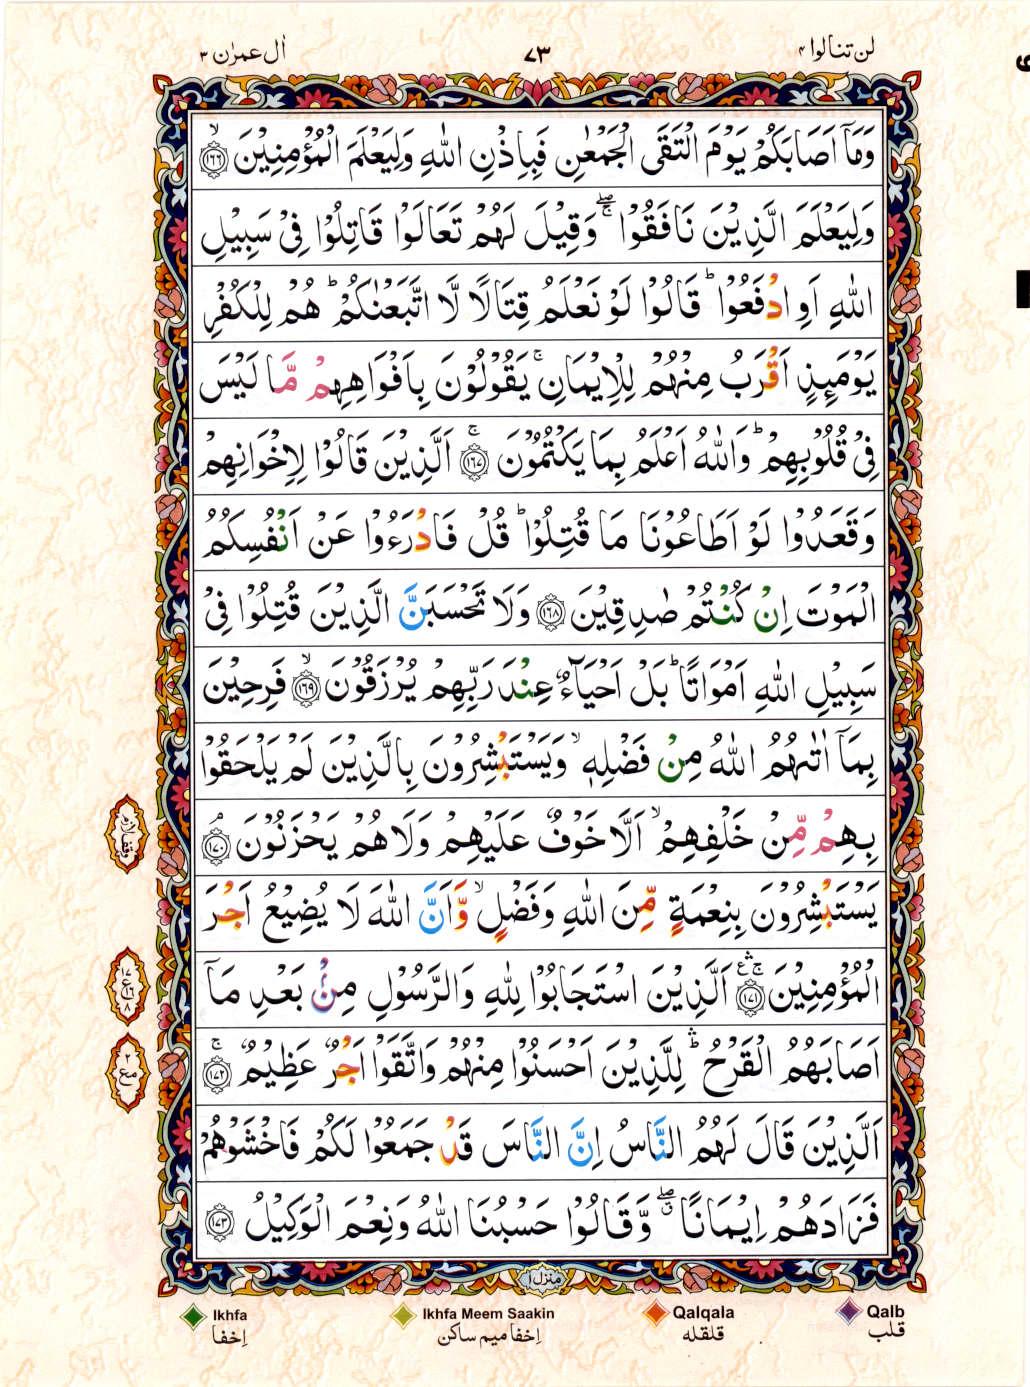 لن تنالوا ۴
۷۳
اٰل عمرٰن ۳
وَمَاۤ اَصَابَكُمْ يَوْمَ الْتَقَى الْجَمْعٰنِ فَبِاِذْنِ اللّٰهِ وَلِيَعْلَمَ الْمُؤْمِنِيْنَ ۙ﴿۱۶۶﴾
وَلِيَعْلَمَ الَّذِيْنَ نَافَقُوْا ۖۚ وَقِيْلَ لَهُمْ تَعَالَوْا قَاتِلُوْا فِيْ سَبِيْلِ
اللّٰهِ اَوِ ادْفَعُوْا ؕ قَالُوْا لَوْ نَعْلَمُ قِتَالًا لَّا اتَّبَعْنٰكُمْ ؕ هُمْ لِلْكُفْرِ
يَوْمَىِٕذٍ اَقْرَبُ مِنْهُمْ لِلْاِيْمَانِ ۚ يَقُوْلُوْنَ بِاَفْوَاهِهِمْ مَّا لَيْسَ
فِيْ قُلُوْبِهِمْ ؕ وَاللّٰهُ اَعْلَمُ بِمَا يَكْتُمُوْنَ ۚ﴿۱۶۷﴾ اَلَّذِيْنَ قَالُوْا لِاِخْوَانِهِمْ
وَقَعَدُوْا لَوْ اَطَاعُوْنَا مَا قُتِلُوْا ؕ قُلْ فَادْرَءُوْا عَنْ اَنْفُسِكُمُ
الْمَوْتَ اِنْ كُنْتُمْ صٰدِقِيْنَ ﴿۱۶۸﴾ وَلَا تَحْسَبَنَّ الَّذِيْنَ قُتِلُوْا فِيْ
سَبِيْلِ اللّٰهِ اَمْوَاتًا ؕ بَلْ اَحْيَآءٌ عِنْدَ رَبِّهِمْ يُرْزَقُوْنَ ۙ﴿۱۶۹﴾ فَرِحِيْنَ
بِمَاۤ اٰتٰىهُمُ اللّٰهُ مِنْ فَضْلِهٖ ۙ وَيَسْتَبْشِرُوْنَ بِالَّذِيْنَ لَمْ يَلْحَقُوْا
بِهِمْ مِّنْ خَلْفِهِمْ ۙ اَلَّا خَوْفٌ عَلَيْهِمْ وَلَا هُمْ يَحْزَنُوْنَ ۘ﴿۱۷۰﴾
يَسْتَبْشِرُوْنَ بِنِعْمَةٍ مِّنَ اللّٰهِ وَفَضْلٍ ۙ وَّاَنَّ اللّٰهَ لَا يُضِيْعُ اَجْرَ
الْمُؤْمِنِيْنَ ۚ﴿۱۷۱﴾ اَلَّذِيْنَ اسْتَجَابُوْا لِلّٰهِ وَالرَّسُوْلِ مِنْۢ بَعْدِ مَاۤ
اَصَابَهُمُ الْقَرْحُ ۛؕ لِلَّذِيْنَ اَحْسَنُوْا مِنْهُمْ وَاتَّقَوْا اَجْرٌ عَظِيْمٌ ۚ﴿۱۷۲﴾
اَلَّذِيْنَ قَالَ لَهُمُ النَّاسُ اِنَّ النَّاسَ قَدْ جَمَعُوْا لَكُمْ فَاخْشَوْهُمْ
فَزَادَهُمْ اِيْمَانًا ۖۗ وَّقَالُوْا حَسْبُنَا اللّٰهُ وَنِعْمَ الْوَكِيْلُ ﴿۱۷۳﴾
منزل ۱
Ikhfa
اِخفا
Ikhfa Meem Saakin
اِخفا میم ساکن
Qalqala
قلقله
Qalb
قلب